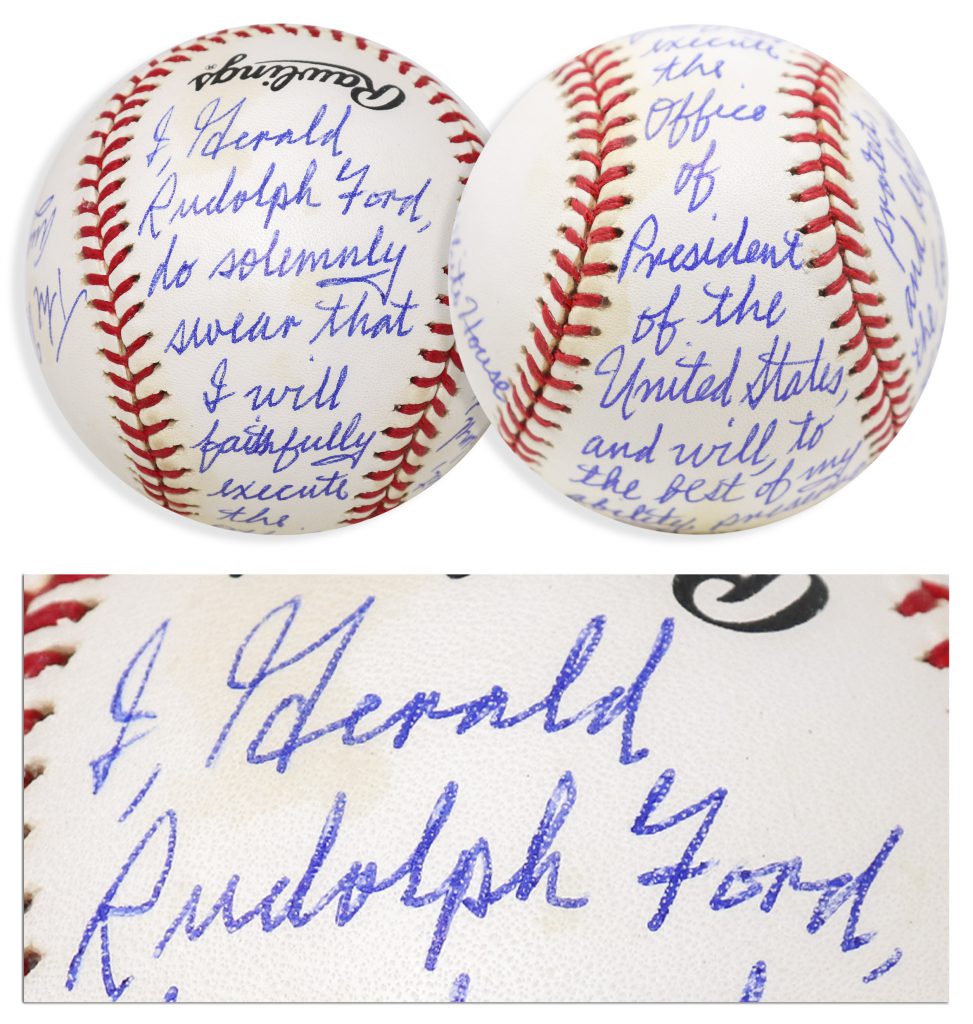 Rawlings
I, Gerald
Rudolph Ford,
do solemnly
swear that
I will
faithfully
execute
the
execute
the
Office
of
President
of the
United States,
and will, to
the best of my
ability, preserve
protect
and
the
House
I, Gerald
Rudolph Ford,